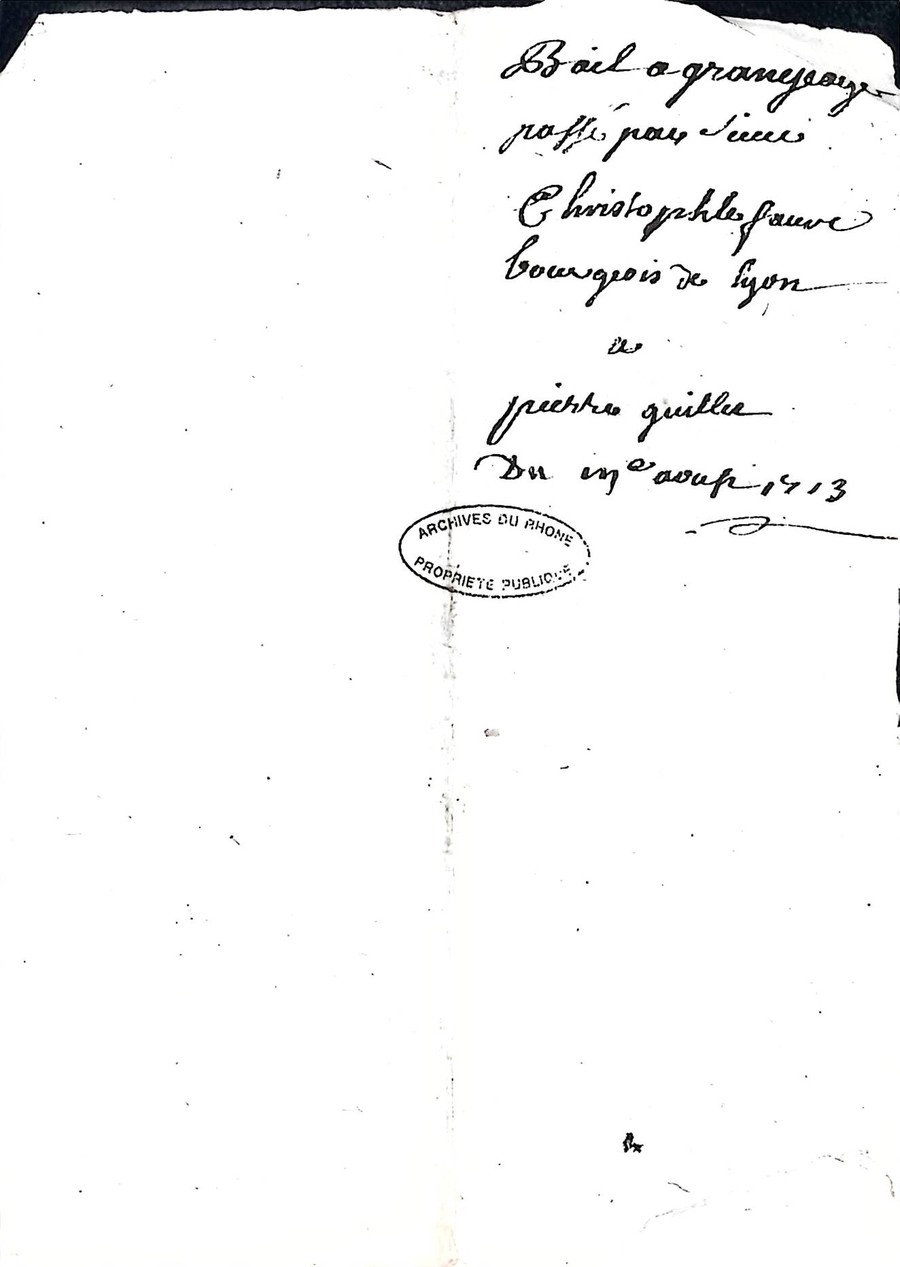 Bail a grangeage
passé par Sieur
Christophle faure
bourgeois de lyon
a
pierre guillet
Du aoust 1713
ARCHIVES DU RHONE
PROPRIETE PUBLIQUE